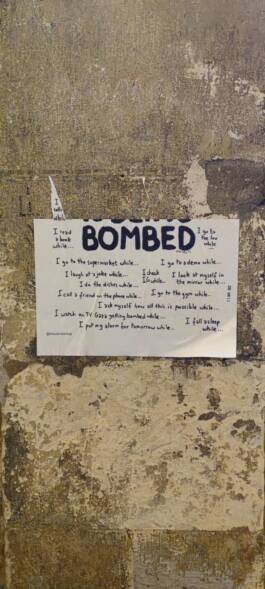 I
I read
a book
while...
BOMBED
I go to
the loo
while
I go to the supermarket while...
I go to a demo while...
I laugh at a joke while...
I check
IG while...
I look at myself in
the mirror while...
I do the dishes while...
I call a friend on the phone while...
I go to the gym while...
I ask myself how all this is possible while...
I watch on TV Gaza getting bombed while...
I fall asleep
while...
I put my alarm for tomorrow while...